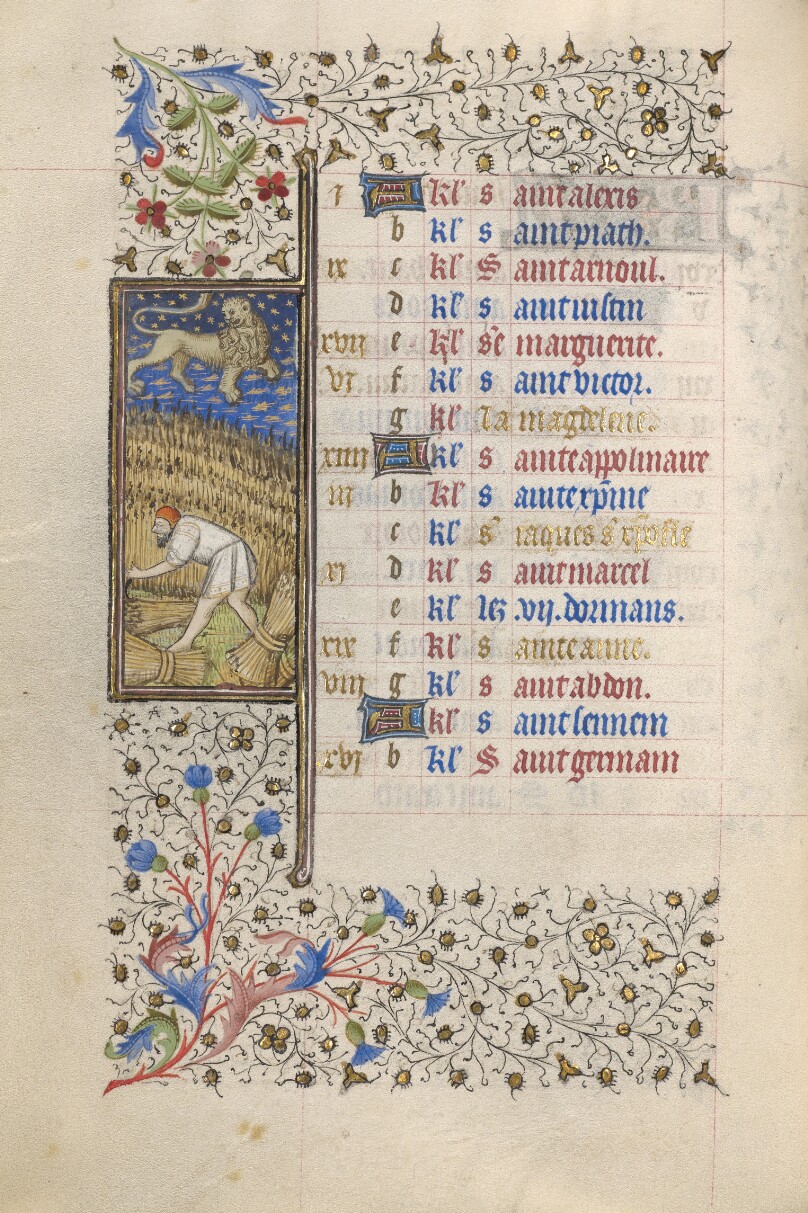 i A kl' s aint alexis
b kl' s aint piath.
ix c kl' S aint arnoul.
d kl' s aint iustin
xvij e kl' s'e marguerite.
vj f kl' s aint victor.
g kl' la magdelene.
xiiij A kl' s ainte appolinaire
iij b kl' s aint expine
c kl' s' iaques s' xpofle
xj d kl' s aint marcel
e kl' les .vij. dormans.
xix f kl' s ainte anne.
viij g kl' s aint abdon.
A kl' s aint sennem
xvj b kl' S aint germain